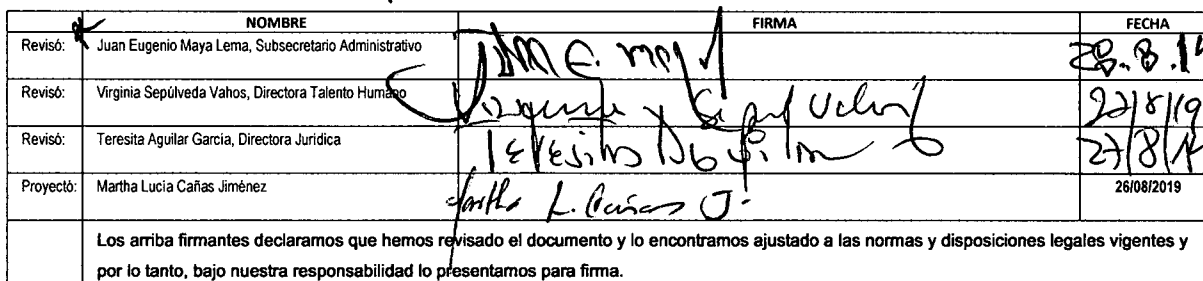 NOMBRE FIRMA FECHA
Revisó: Juan Eugenio Maya Lema, Subsecretario Administrativo 28.8.19
Revisó: Virginia Sepúlveda Vahos, Directora Talento Humano 27/8/19
Revisó: Teresita Aguilar Garcia, Directora Juridica Teresita Aguilar 27/8/19
Proyectó: Martha Lucia Cañas Jiménez Martha L. Cañas J. 26/08/2019
Los arriba firmantes declaramos que hemos revisado el documento y lo encontramos ajustado a las normas y disposiciones legales vigentes y
por lo tanto, bajo nuestra responsabilidad lo presentamos para firma.